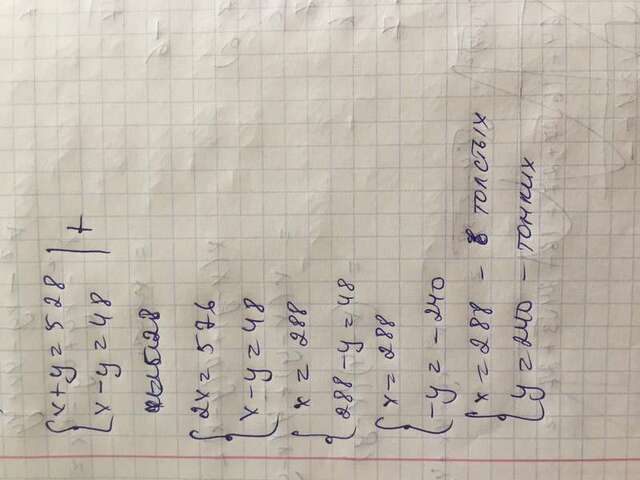 x+y=528 | +
x-y=48
2x=576
x-y=48
x=288
288-y=48
x=288
-y=-240
x=288 - толстых
y=240 - тонких